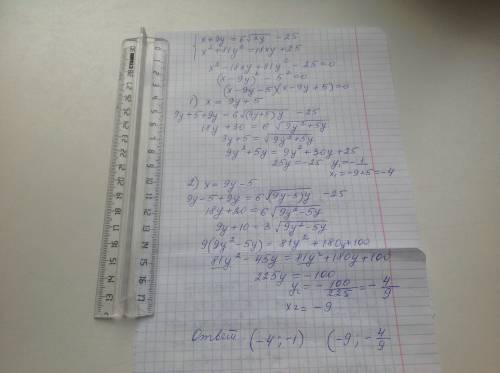 { x+9y = 6√xy − 25
x² + 81y² = 18xy + 25
x² − 18xy + 81y² − 25 = 0
(x−9y)² − 5² = 0
(x−9y−5)(x−9y+5) = 0
1) x = 9y + 5
9y+5+9y = 6√(9y+5)y − 25
18y + 30 = 6√9y²+5y
3y+5 = √9y²+5y
9y²+5y = 9y²+30y+25
25y = −25 y₁ = −1
x₁ = −9+5 = −4
2) x = 9y − 5
9y−5+9y = 6√(9y−5)y − 25
18y + 20 = 6√9y²−5y
9y+10 = 3√9y²−5y
9(9y²−5y) = 81y² + 180y + 100
81y² − 45y = 81y² + 180y + 100
225y = −100
y₂ = −100/225 = −4/9
x₂ = −9
Ответ (−4; −1) (−9; −4/9
0 1 2 3 4 5 6 7 8 9 10 11 12 13 14